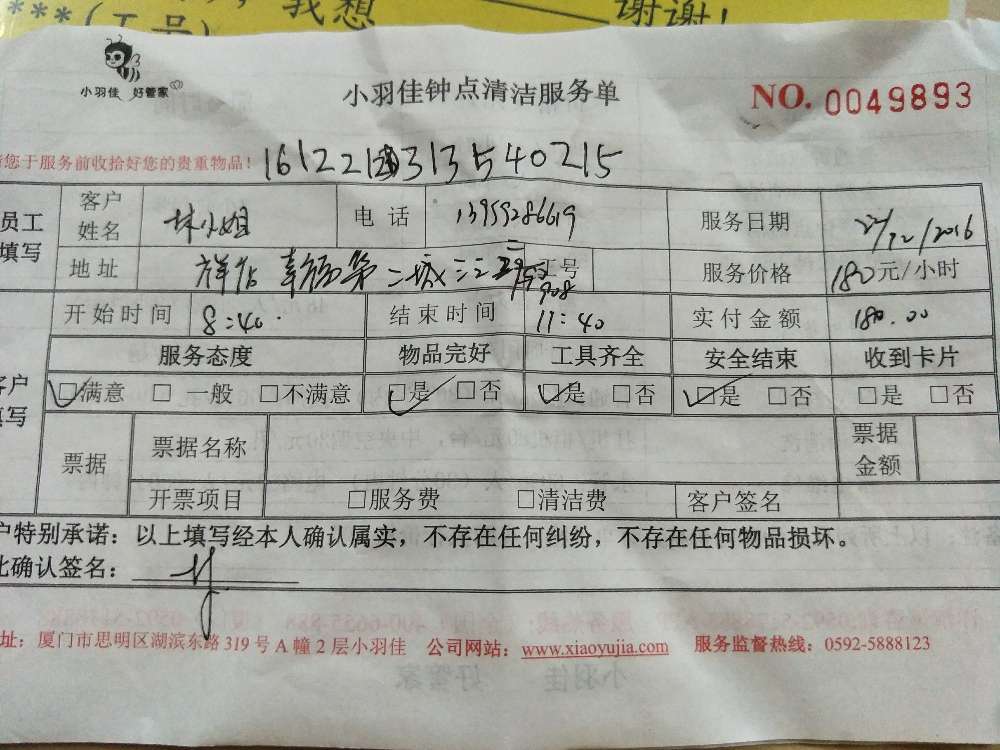 ***(工号)
,我想
谢谢!
小羽佳 好管家
小羽佳钟点清洁服务单
NO. 0049893
您于服务前收拾好您的贵重物品!
员工填写
客户姓名 林小姐 电话 13959286619 服务日期 22/12/2016
地址 工号 908 服务价格 180元/小时
开始时间 8:40 结束时间 11:40 实付金额 180.00
服务态度 物品完好 工具齐全 安全结束 收到卡片
客户填写
□满意 □一般 □不满意 □是 □否 □是 □否 □是 □否 □是 □否
票据 票据名称 票据金额
开票项目 □服务费 □清洁费 客户签名
户特别承诺:以上填写经本人确认属实,不存在任何纠纷,不存在任何物品损坏。
此确认签名:
址:厦门市思明区湖滨东路319号A幢2层小羽佳 公司网站:www.xiaoyujia.com 服务监督热线:0592-5888123